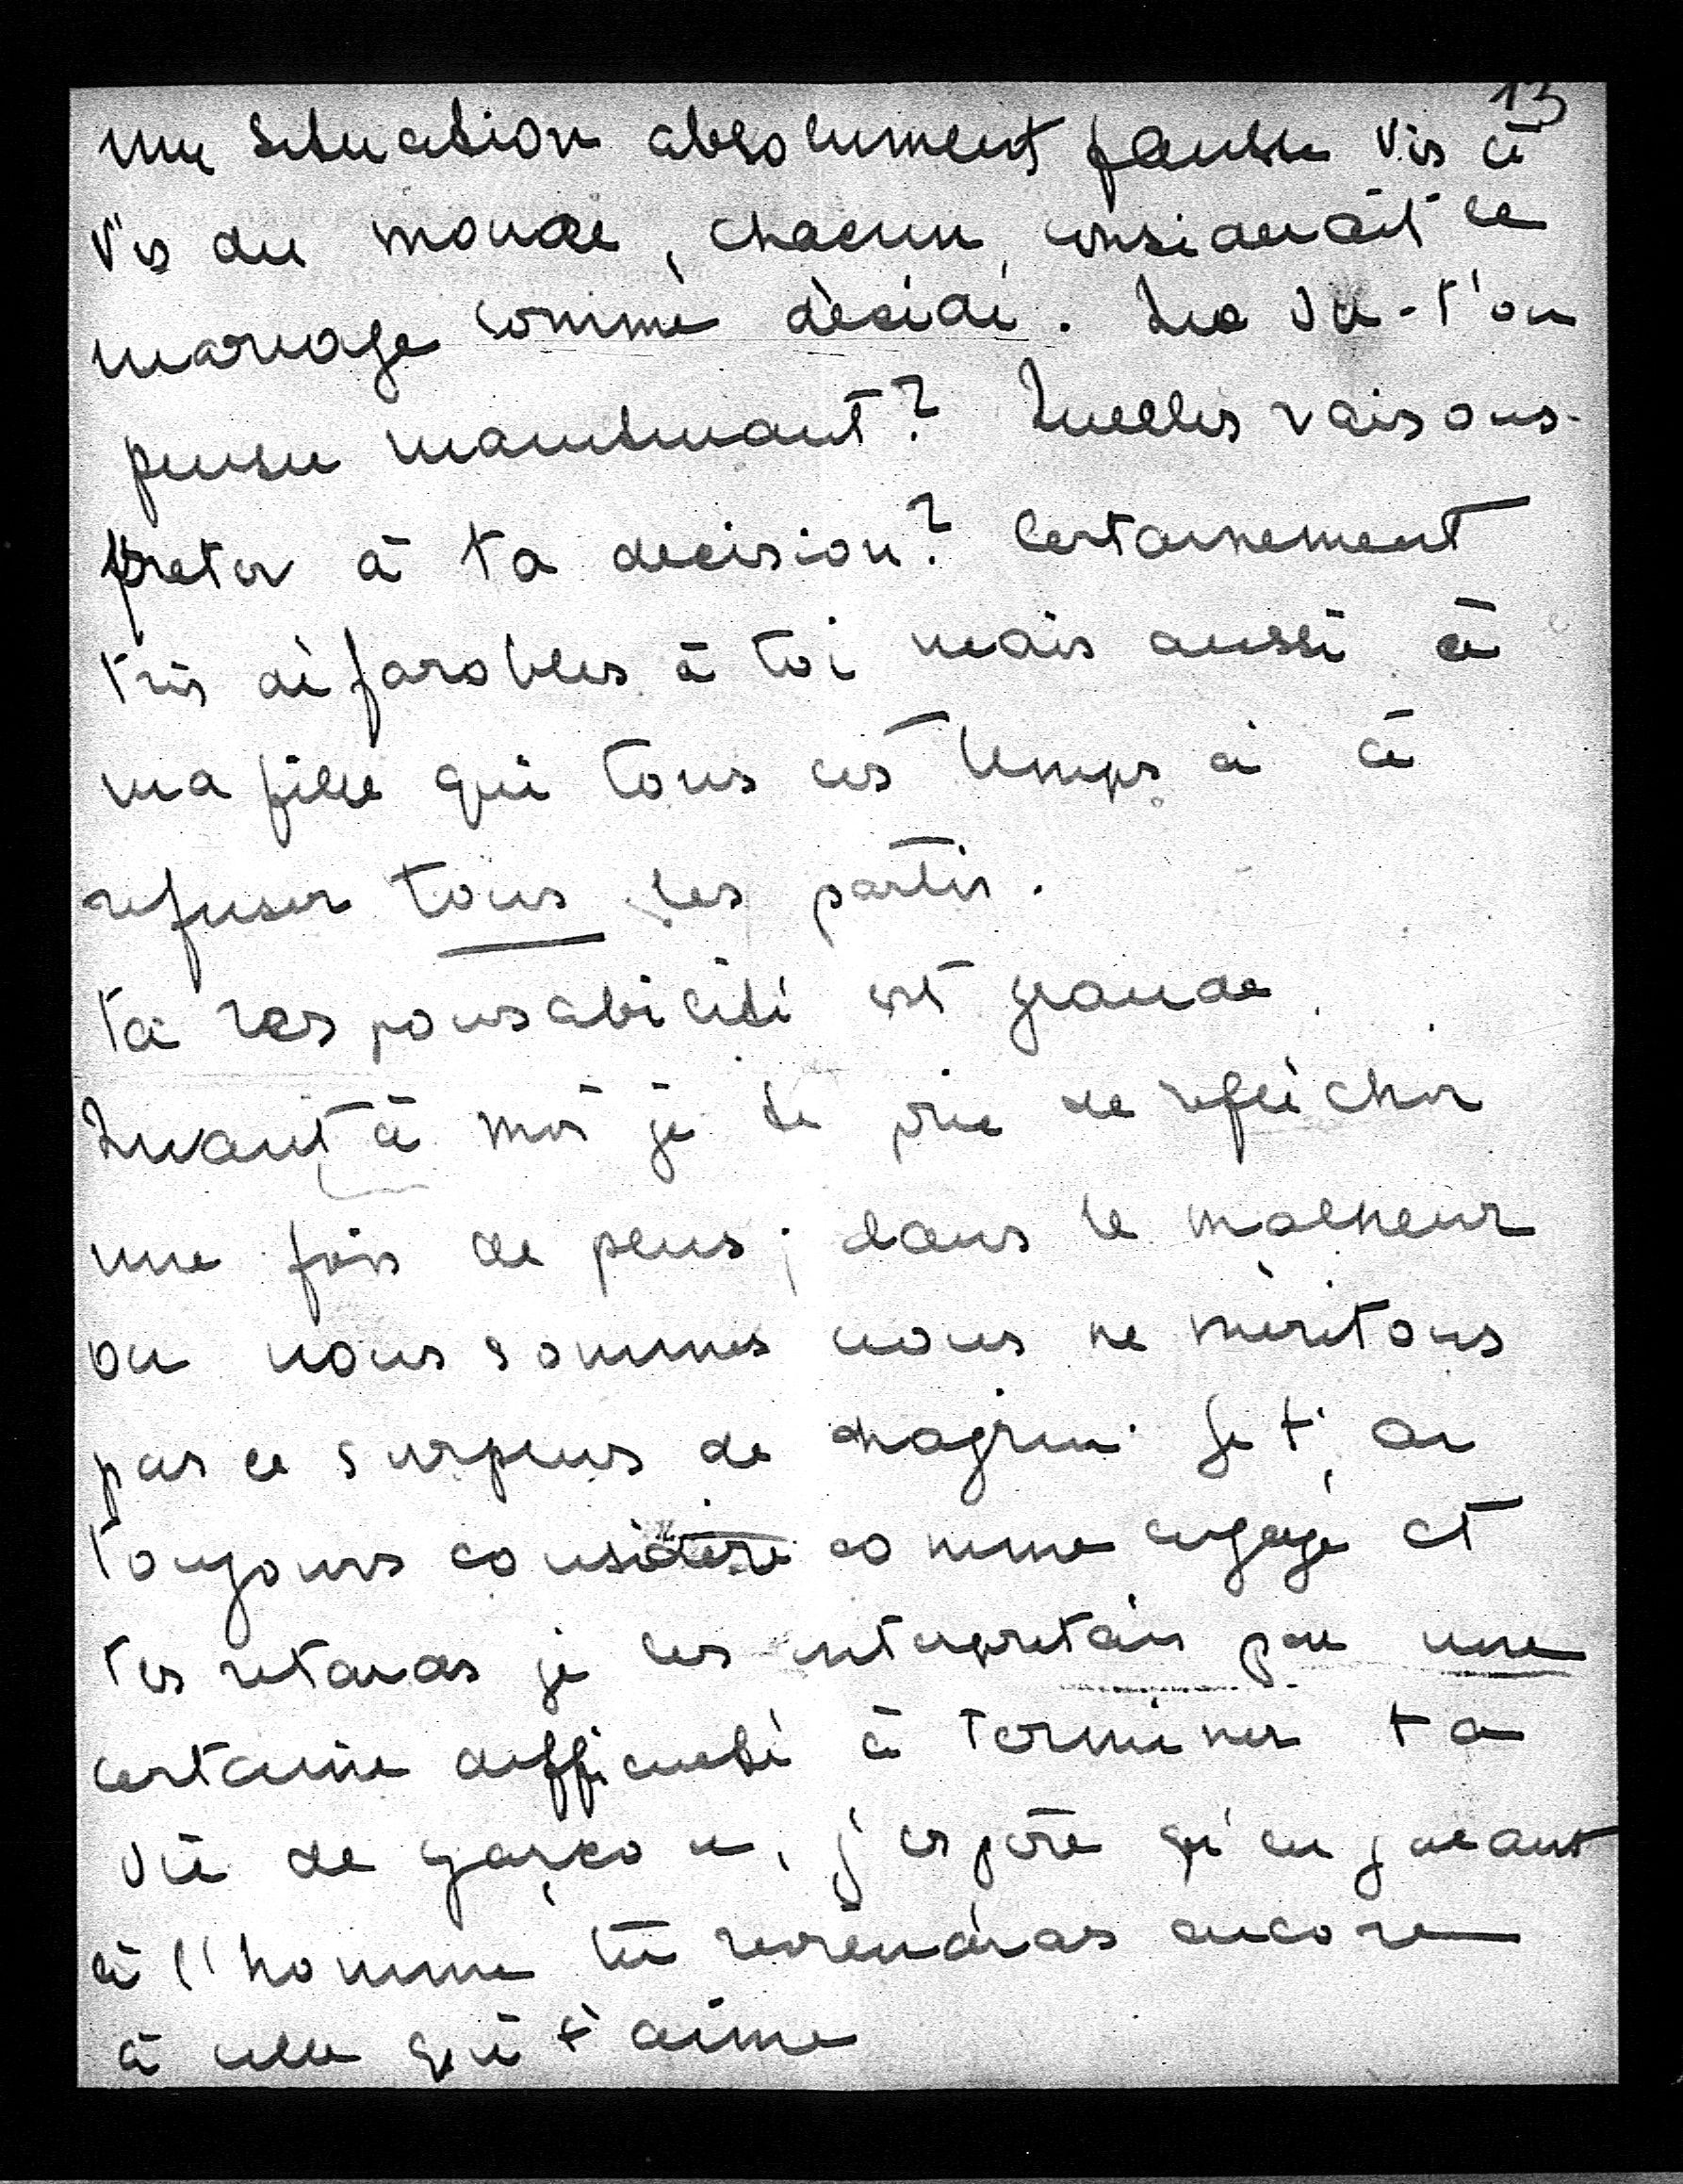 13
une situation absolument fausse vis à
vis du monde, chacun considerait ce
mariage comme décidé. Que va-t'on
penser maintenant? Quelles raisons
preter à ta decision? Certainement
très défavorbles à toi mais aussi à
ma fille qui tous ces temps ci à
refuser tous les partis.
ta responsabilité est grande
Quant à moi je te prie de refléchir
une fois de plus; dans le malheur
ou nous sommes nous ne méritons
pas ce surplus de chagrin. Je t'ai
toujours consideré comme engagé et
tes retards je les interpretais par une
certaine difficulté à terminer ta
vie de garçon, j'espère qu'en
à l'homme tu reviendras encore
à celle qui t'aime